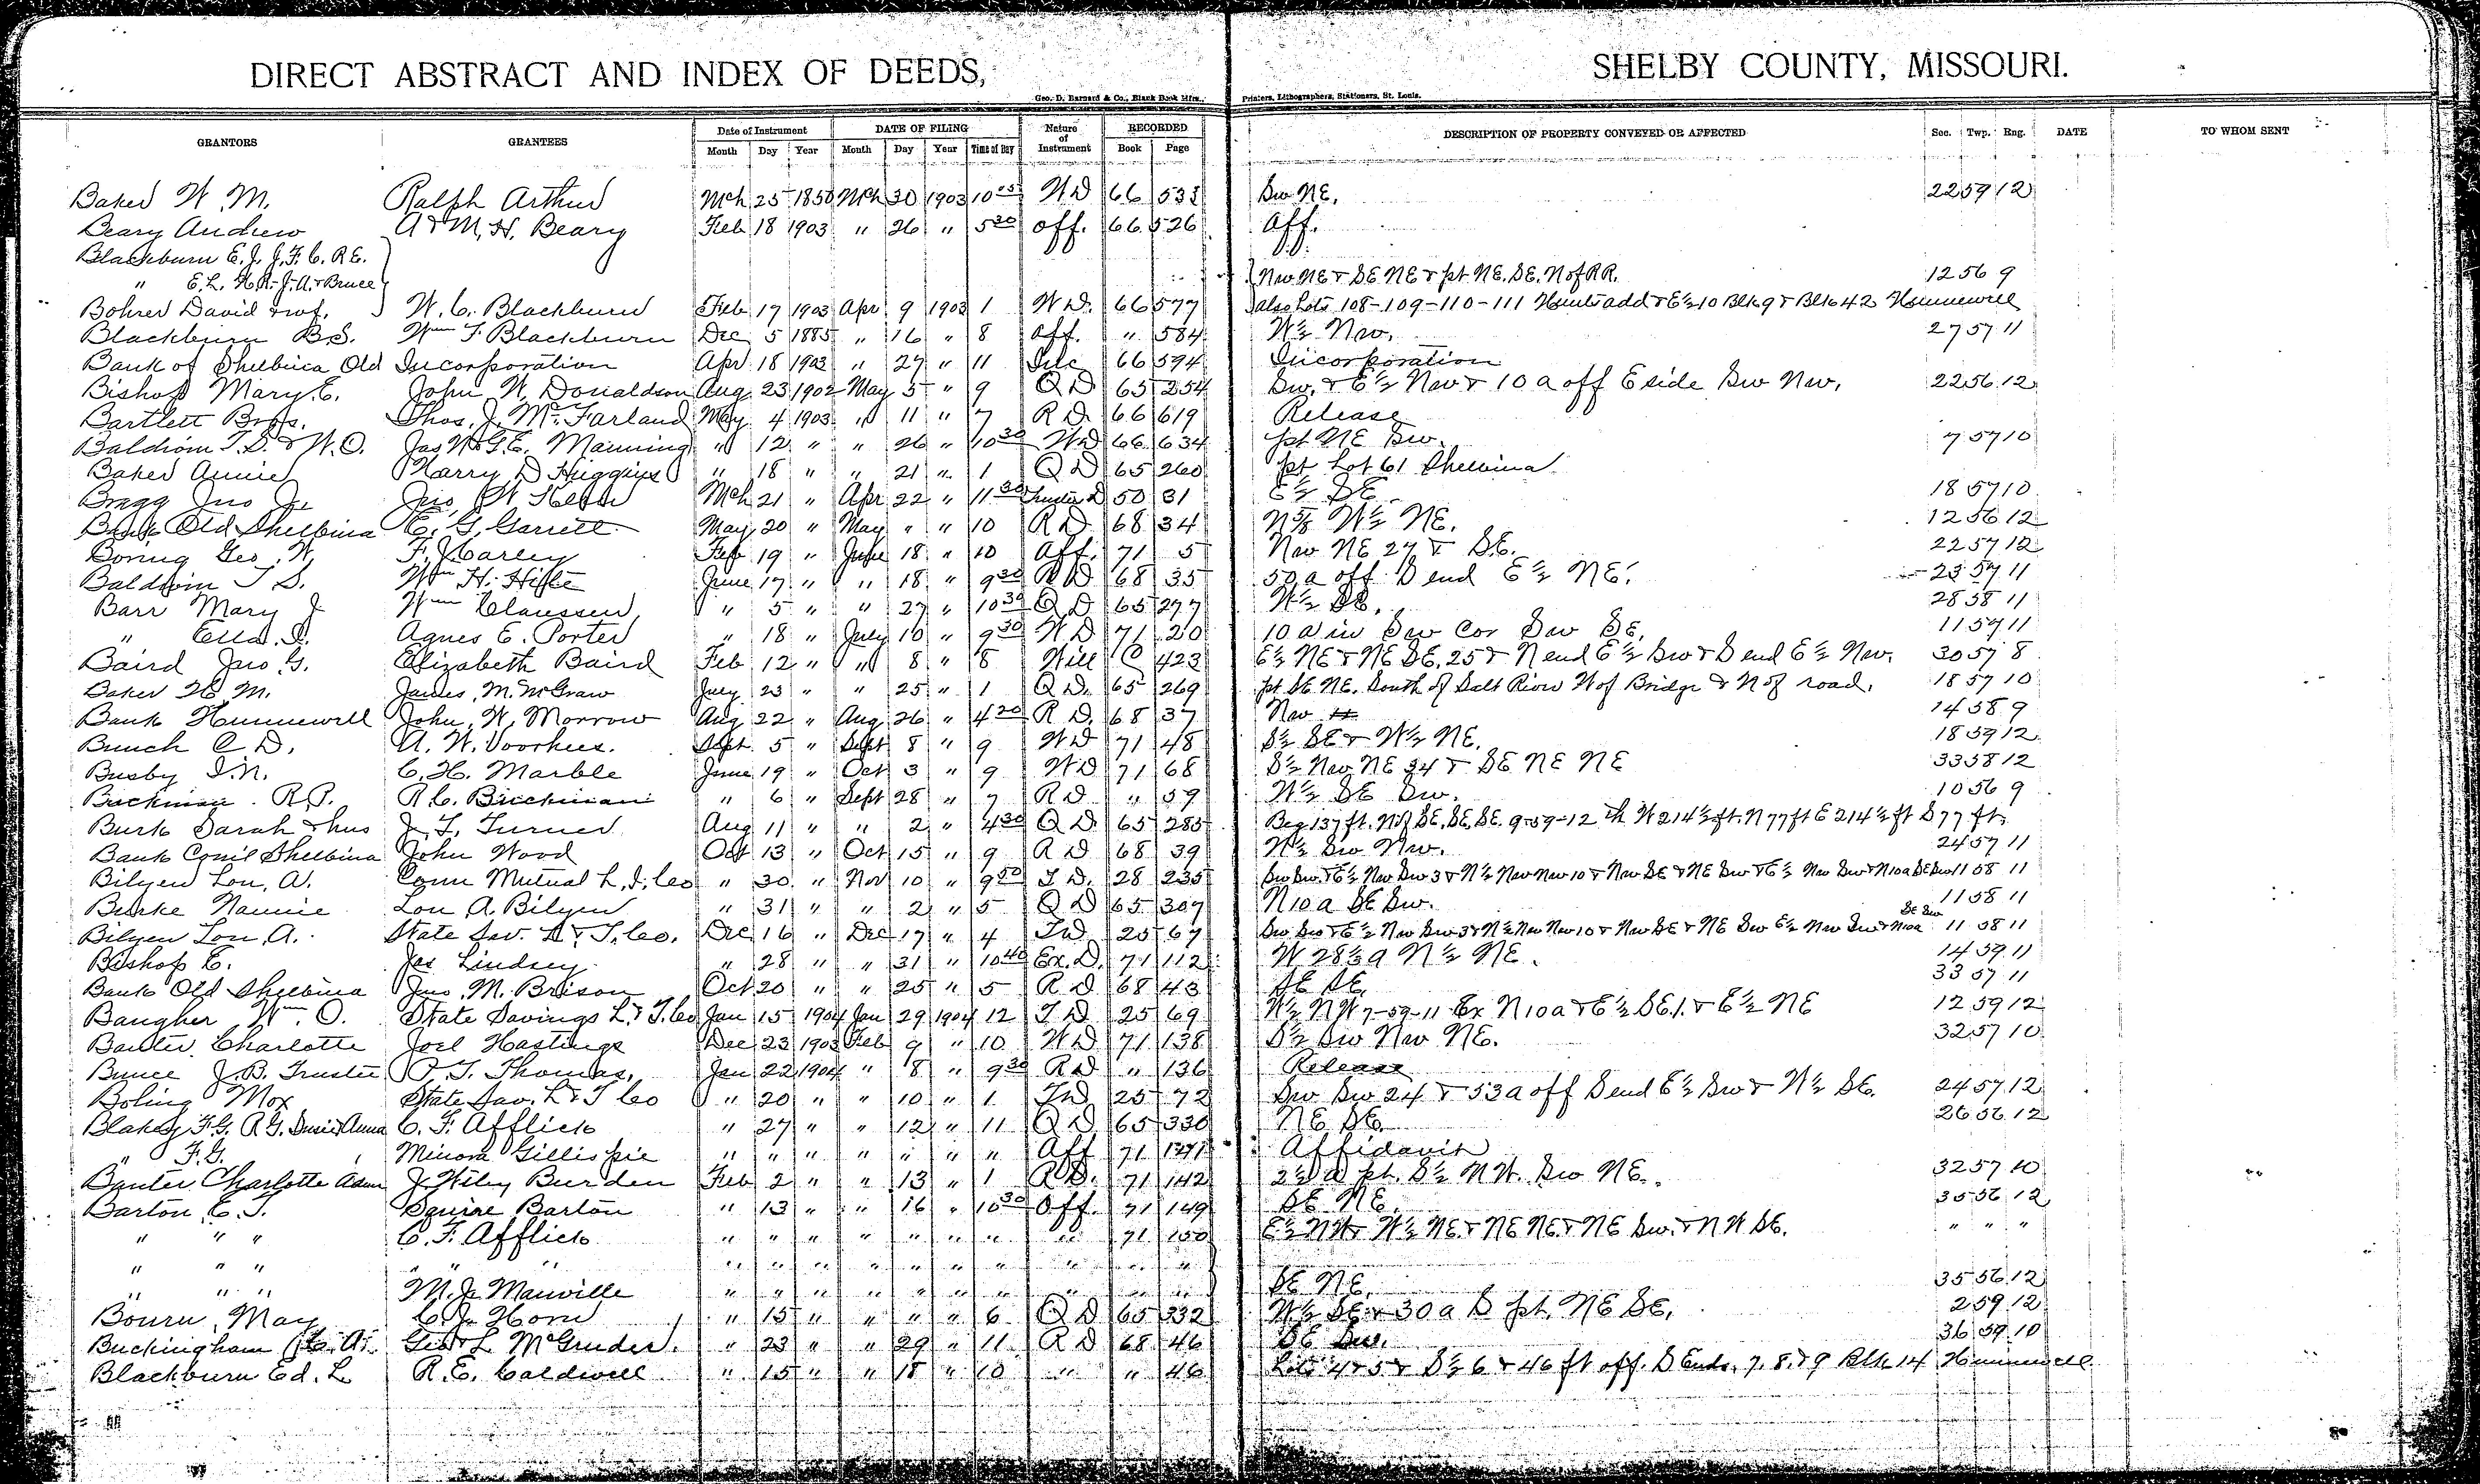 DIRECT ABSTRACT AND INDEX OF DEEDS, SHELBY COUNTY, MISSOURI.
Geo. D. Barnard & Co., Blank Book Mfrs., Printers, Lithographers, Stationers, St. Louis.
GRANTORS GRANTEES Date of Instrument DATE OF FILING Nature of Instrument RECORDED DESCRIPTION OF PROPERTY CONVEYED OR AFFECTED Sec. Twp. Rng. DATE TO WHOM SENT
Month Day Year Month Day Year Time of Day Book Page
Baker W. M. Ralph Arthur Mch 25 1850 Mch 30 1903 10 W D 66 533 Sw NE. 22 59 12
Beary Andrew A & M. H. Beary Feb 18 1903 " 26 " 5 30 Aff. 66 526 Aff.
Blackburn E. J. J. F. C. R E.
" E. L. H. R. J. A. & Bruce Nw NE & SE NE & pt NE. SE. N of RR. 12 56 9
Bohrer David & wf. W. C. Blackburn Feb 17 1903 Apr 9 1903 1 W D. 66 577 also Lots 108-109-110-111 Hunts add & E½ 10 Blk 9 & Blk 42 Hunnewell
Blackburn B. S. Wm T. Blackburn Dec 5 1885 " 16 " 8 Aff. " 584 W½ Nw. 27 57 11
Bank of Shelbina Old Incorporation Apr 18 1903 " 27 " 11 Inc 66 594 Incorporation
Bishop Mary E. John W. Donaldson Aug 23 1902 May 5 " 9 Q D 65 254 Sw. & E½ Nw & 10 a off E side Sw Nw. 22 56 12
Bartlett Bros. Thos. J. McFarland May 4 1903 " 11 " 7 R D 66 619 Release
Baldwin T. S. & W. O. Jas W. & G. E. Manning " 12 " " 26 " 10 30 W D 66 634 pt NE Sw. 7 57 10
Baker Annie Harry D Huggins " 18 " " 21 " 1 Q D 65 260 pt Lot 61 Shelbina
Bragg Jno J. Jno. W Mch 21 " Apr 22 " 11 30 Trustee D 50 31 E½ SE 18 57 10
Bank Old Shelbina E. G. Garrett May 20 " May " " 10 R D 68 34 N⅝ W½ NE. 12 56 12
Boring Geo. W. F. Harley Feb 19 " June 18 " 10 Aff. 71 5 Nw NE 27 & S.E. 22 57 12
Baldwin T S. Wm H. June 17 " " 18 " 9 30 R D 68 35 50 a off S end E½ NE. 23 57 11
Barr Mary J Wm Claussen " 5 " " 27 " 10 30 Q D 65 277 W½ SE. 28 58 11
" Ella. Agnes E. Porter " 18 " July 10 " 9 30 W D 71 20 10 a in Sw Cor Sw SE. 11 57 11
Baird Jno. G. Elizabeth Baird Feb 12 " " 8 " 8 Will C 423 E½ NE & NE SE. 25 & N end E½ Sw & S end E½ Nw. 30 57 8
Baker H. M. James M. McGraw July 23 " " 25 " 1 Q D. 65 269 pt SE NE. South of Salt River W of Bridge & N of road. 18 57 10
Bank Hunnewell John W. Morrow Aug 22 " Aug 26 " 4 20 R D. 68 37 Nw 14 58 9
Bunch C D. A. W. Voorhees. Sept. 5 " Sept 8 " 9 W D 71 48 S½ SE & W½ NE. 18 59 12
Busby I. N. C. H. Marble June 19 " Oct 3 " 9 W D 71 68 S½ Nw NE 34 & SE NE NE 33 58 12
Buckman R. P. R. C. Buckman " 6 " Sept 28 " 7 R D " 59 W½ SE Sw. 10 56 9
Burk Sarah & hus J. T. Turner Aug 11 " " 2 " 4 30 Q D. 65 285 Beg 137 ft. N of SE. SE. SE. 9-59-12 th W 214½ ft. N 77 ft E 214½ ft S 77 ft.
Bank Coml Shelbina John Wood Oct 13 " Oct 15 " 9 R D 68 39 N½ Sw Nw. 24 57 11
Bilyeu Lou. A. Conn Mutual L. I. Co " 30 " Nov 10 " 9 50 T. D. 28 235 Sw Sw. & E½ Nw Sw 3 & N½ Nw Nw 10 & Nw SE & NE Sw & E½ Nw Sw & N 10 a SE Sw 11 58 11
Burke Nannie Lou A. Bilyeu " 31 " " 2 " 5 Q D 65 307 N 10 a SE Sw. 11 58 11
Bilyeu Lou. A. State Sav. L & T. Co. Dec 16 " Dec 17 " 4 T D 25 67 Sw Sw & E½ Nw Sw 3 & N½ Nw Nw 10 & Nw SE & NE Sw E½ Nw Sw & N 10 a SE Sw 11 58 11
Bishop E. Jas Lindsey " 28 " " 31 " 10 40 Ex. D. 71 112 W 28⅓ a N½ NE. 14 59 11
Bank Old Shelbina Jno. M. Brison Oct 20 " " 25 " 5 R D 68 43 SE SE. 33 57 11
Baugher Wm. O. State Savings L. & T. Co Jan 15 1904 Jan 29 1904 12 T D 25 69 W½ NW 7-59-11 Ex N 10 a & E½ SE. 1. & E½ NE 12 59 12
Banter Charlotte Joel Hastings Dec 23 1903 Feb 9 " 10 W D 71 138 S½ Sw Nw NE. 32 57 10
Bunce J. B. Trustee P. T. Thomas. Jan 22 1904 " 8 " 9 30 R D " 136 Release
Boling Mox State Sav. L & T Co " 20 " " 10 " 1 T D 25 72 Sw Sw 24 & 53 a off S end E½ Sw & W½ SE. 24 57 12
Blakey F. G. R G. Susie & Anna C. F. Afflick " 27 " " 12 " 11 Q D 65 330 NE SE. 26 56 12
" F. G. Minora Gillispie " " " " " " " Aff 71 141 Affidavit
Banter Charlotte Adm J. Wiley Burden Feb 2 " " 13 " 1 R D. 71 142 2½ a pt. S½ N W. Sw NE. 32 57 10
Barton C. T. Squire Barton " 13 " " 16 " 10 30 Aff. 71 149 SE NE. 35 56 12
" " " C. F. Afflick " " " " " " " " 71 150 E½ NW & W½ NE. & NE NE. & NE Sw. & N W SE. " " "
" " " " " " " " " " " " " " " " "
" " " M. J. Manville " " " " " " " " " " SE NE. 35 56 12
Bourn, May C. J. Horn " 15 " " " " 6 Q D 65 332 W½ SE & 30 a S pt. NE SE. 2 59 12
Buckingham C. A. Geo & L. McGruder. " 23 " " 29 " 11 R D 68 46 SE Sw. 36 59 10
Blackburn Ed. L R. E. Caldwell " 15 " " 18 " 10 " " 46 Lots 4 & 5 & S½ 6 & 46 ft off. S Ends. 7. 8. & 9 Blk 14 Hunnewell